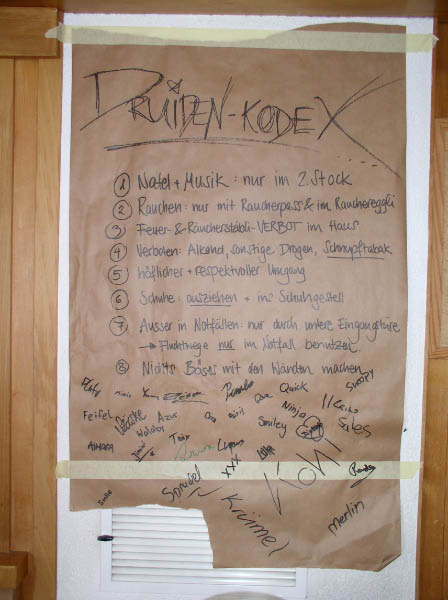 DRUIDEN-KODEX
① Natel + Musik : nur im 2. Stock
② Rauchen : nur mit Raucherpass & im Rauchereggli
③ Feuer- & Räucherstäbli-VERBOT im Haus
④ Verboten: Alkohol, sonstige Drogen, Schnupftabak
⑤ höflicher + respektvoller Umgang
⑥ Schuhe : ausziehen + ins Schuhgestell
⑦ Ausser in Notfällen : nur durch untere Eingangstüre
→ Fluchtwege nur im Notfall benutzen.
⑧ Nichts Böses mit den Wänden machen
Quick Snoopy
Feifel Azur Smiley Ninja
Walabi
XXX
Sprudel
Krümel Merlin